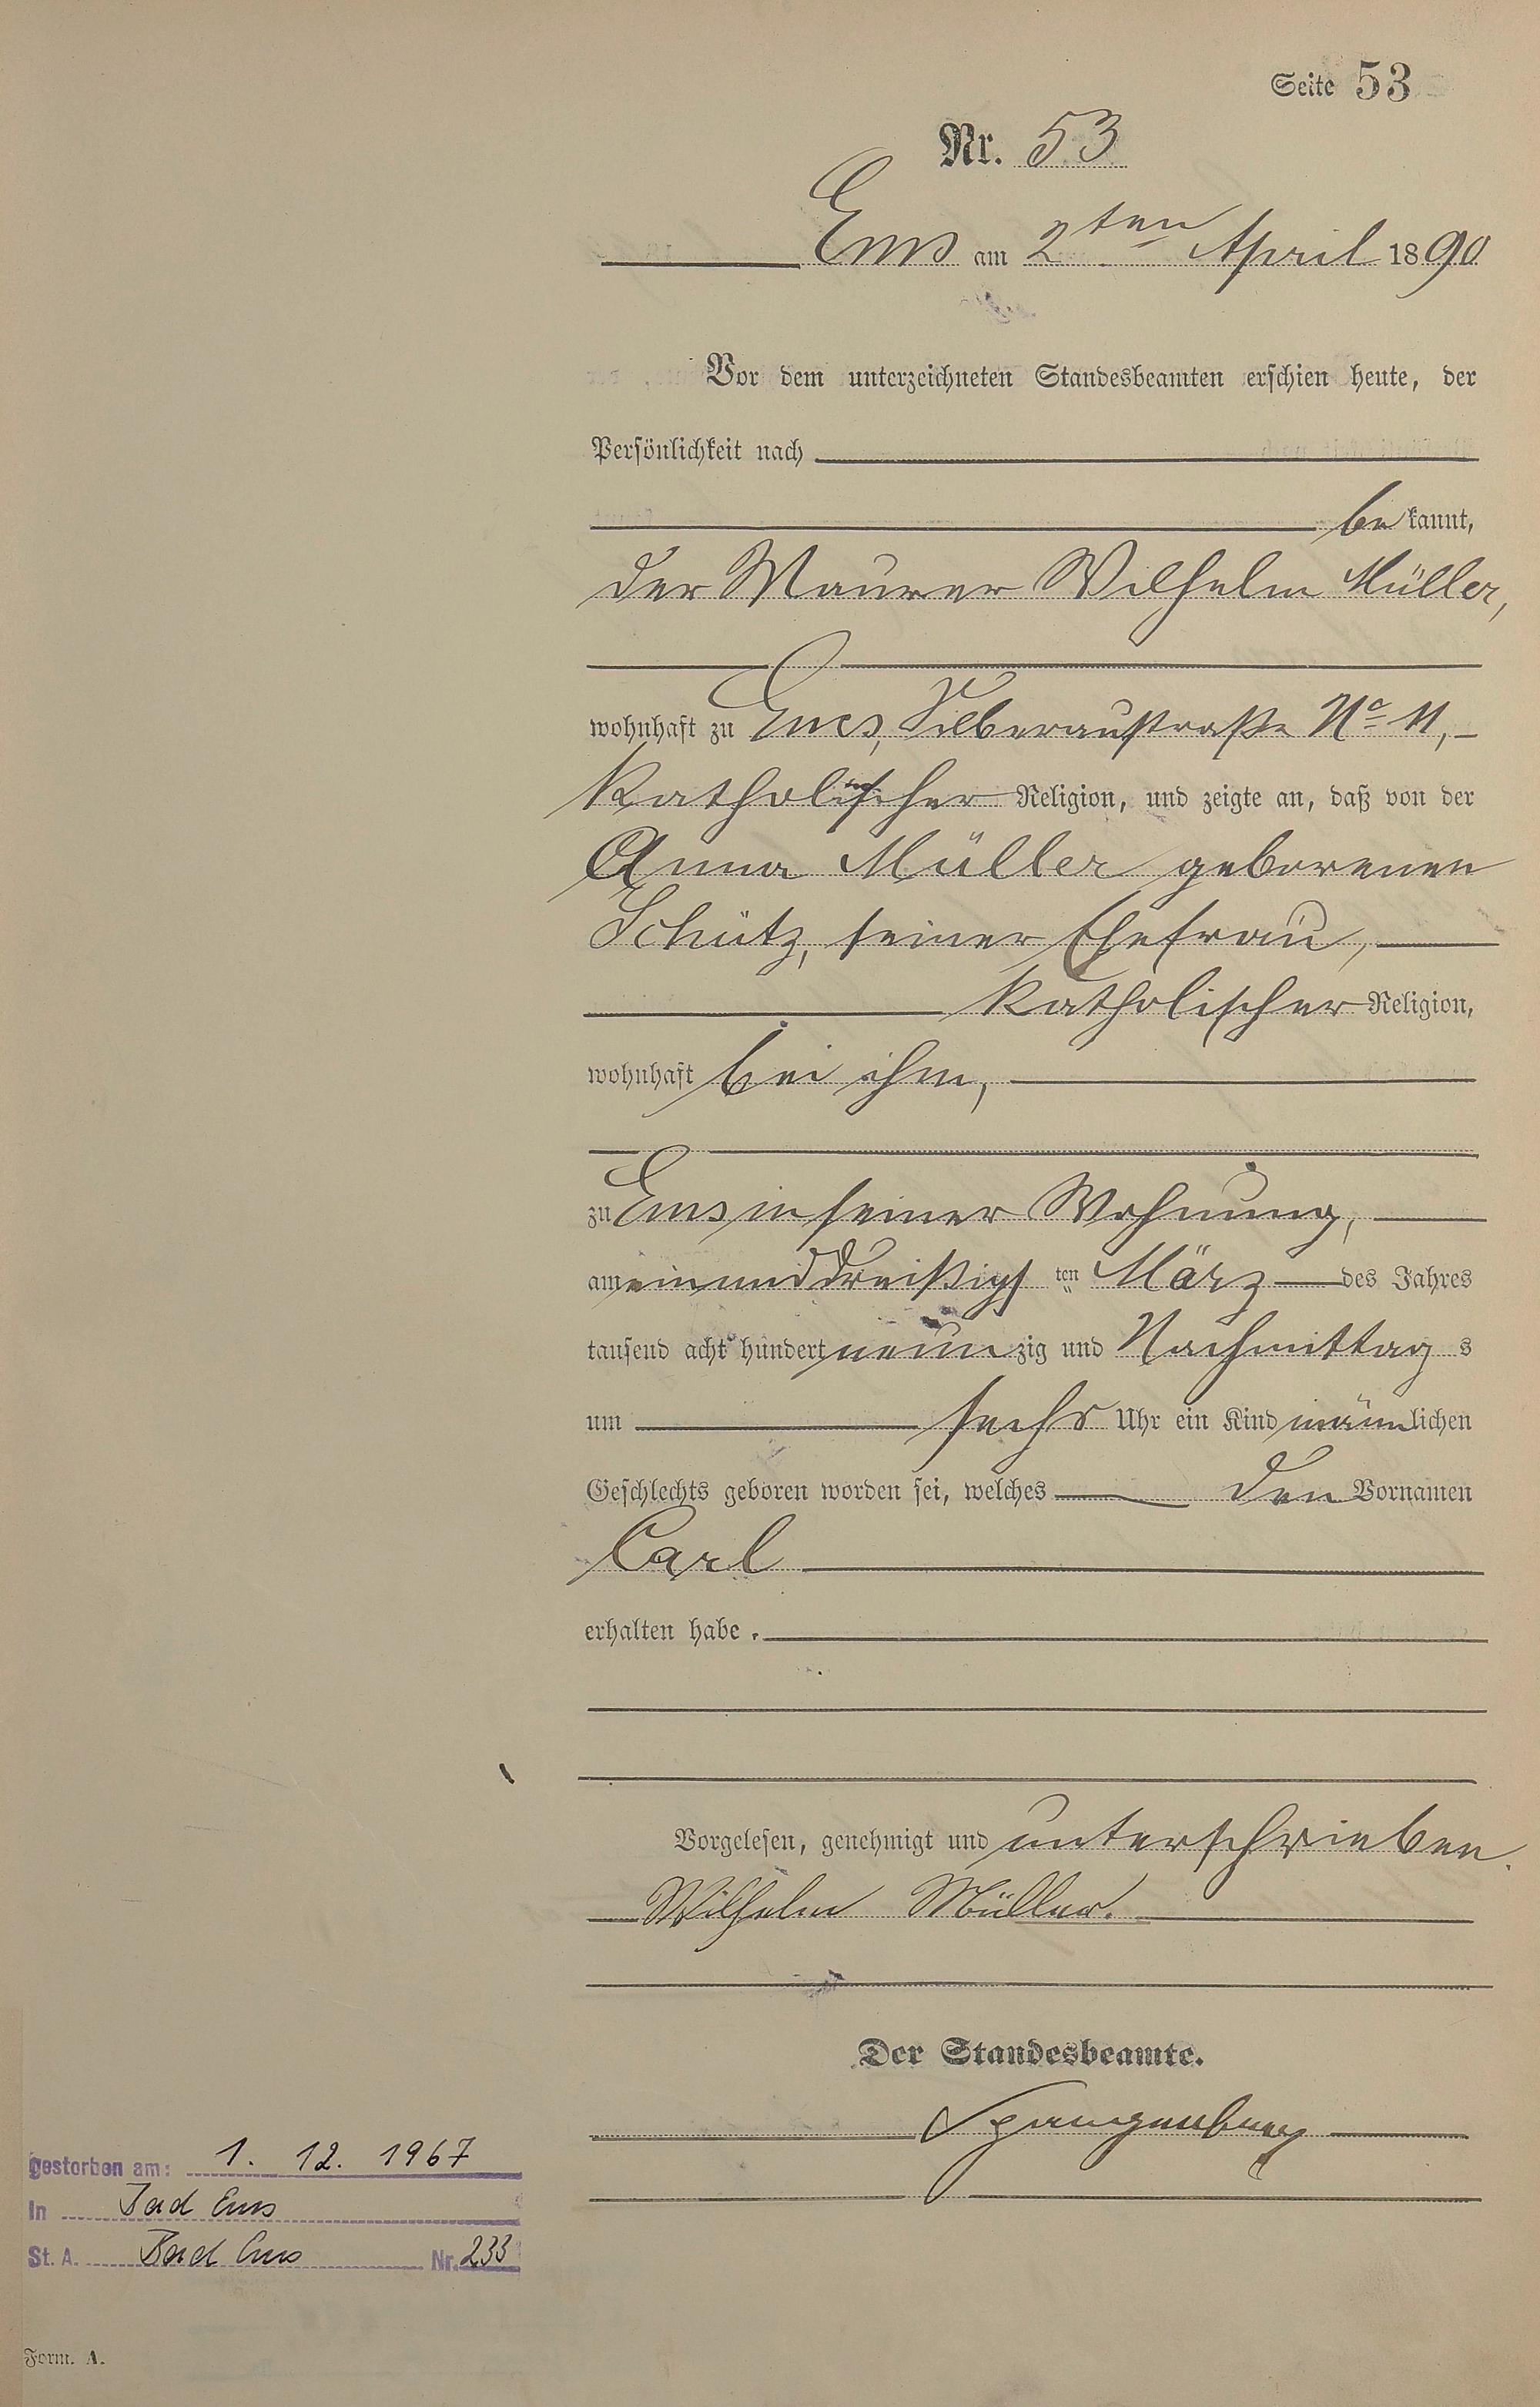 Seite 53
Nr. 53
Ems am 2ten April 1890
Vor dem unterzeichneten Standesbeamten erschien heute, der
Persönlichkeit nach
bekannt,
der Maurer Wilhelm Müller,
wohnhaft zu Ems, Silberaustraße No 11,
katholischer Religion, und zeigte an, daß von der
Anna Müller geborenen
Schütz, seiner Ehefrau,
katholischer Religion,
wohnhaft bei ihm,
zu Ems in seiner Wohnung,
am einunddreißigsten März des Jahres
tausend acht hundert neunzig und Nachmittags
um sechs Uhr ein Kind männlichen
Geschlechts geboren worden sei, welches den Vornamen
Carl
erhalten habe.
Vorgelesen, genehmigt und unterschrieben.
Wilhelm Müller.
Der Standesbeamte.
Spangenberg
gestorben am: 1. 12. 1967
In Bad Ems
St. A. Bad Ems Nr. 233
Form. A.